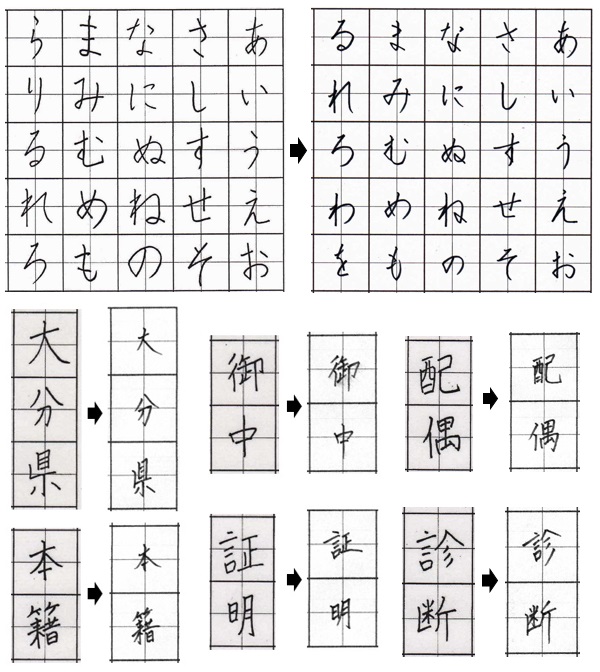 あいうえお
さしすせそ
なにぬねの
まみむめも
らりるれろ
あいうえお
さしすせそ
なにぬねの
まみむめも
るれろわを
大分県
大分県
御中
御中
配偶
配偶
本籍
本籍
証明
証明
診断
診断